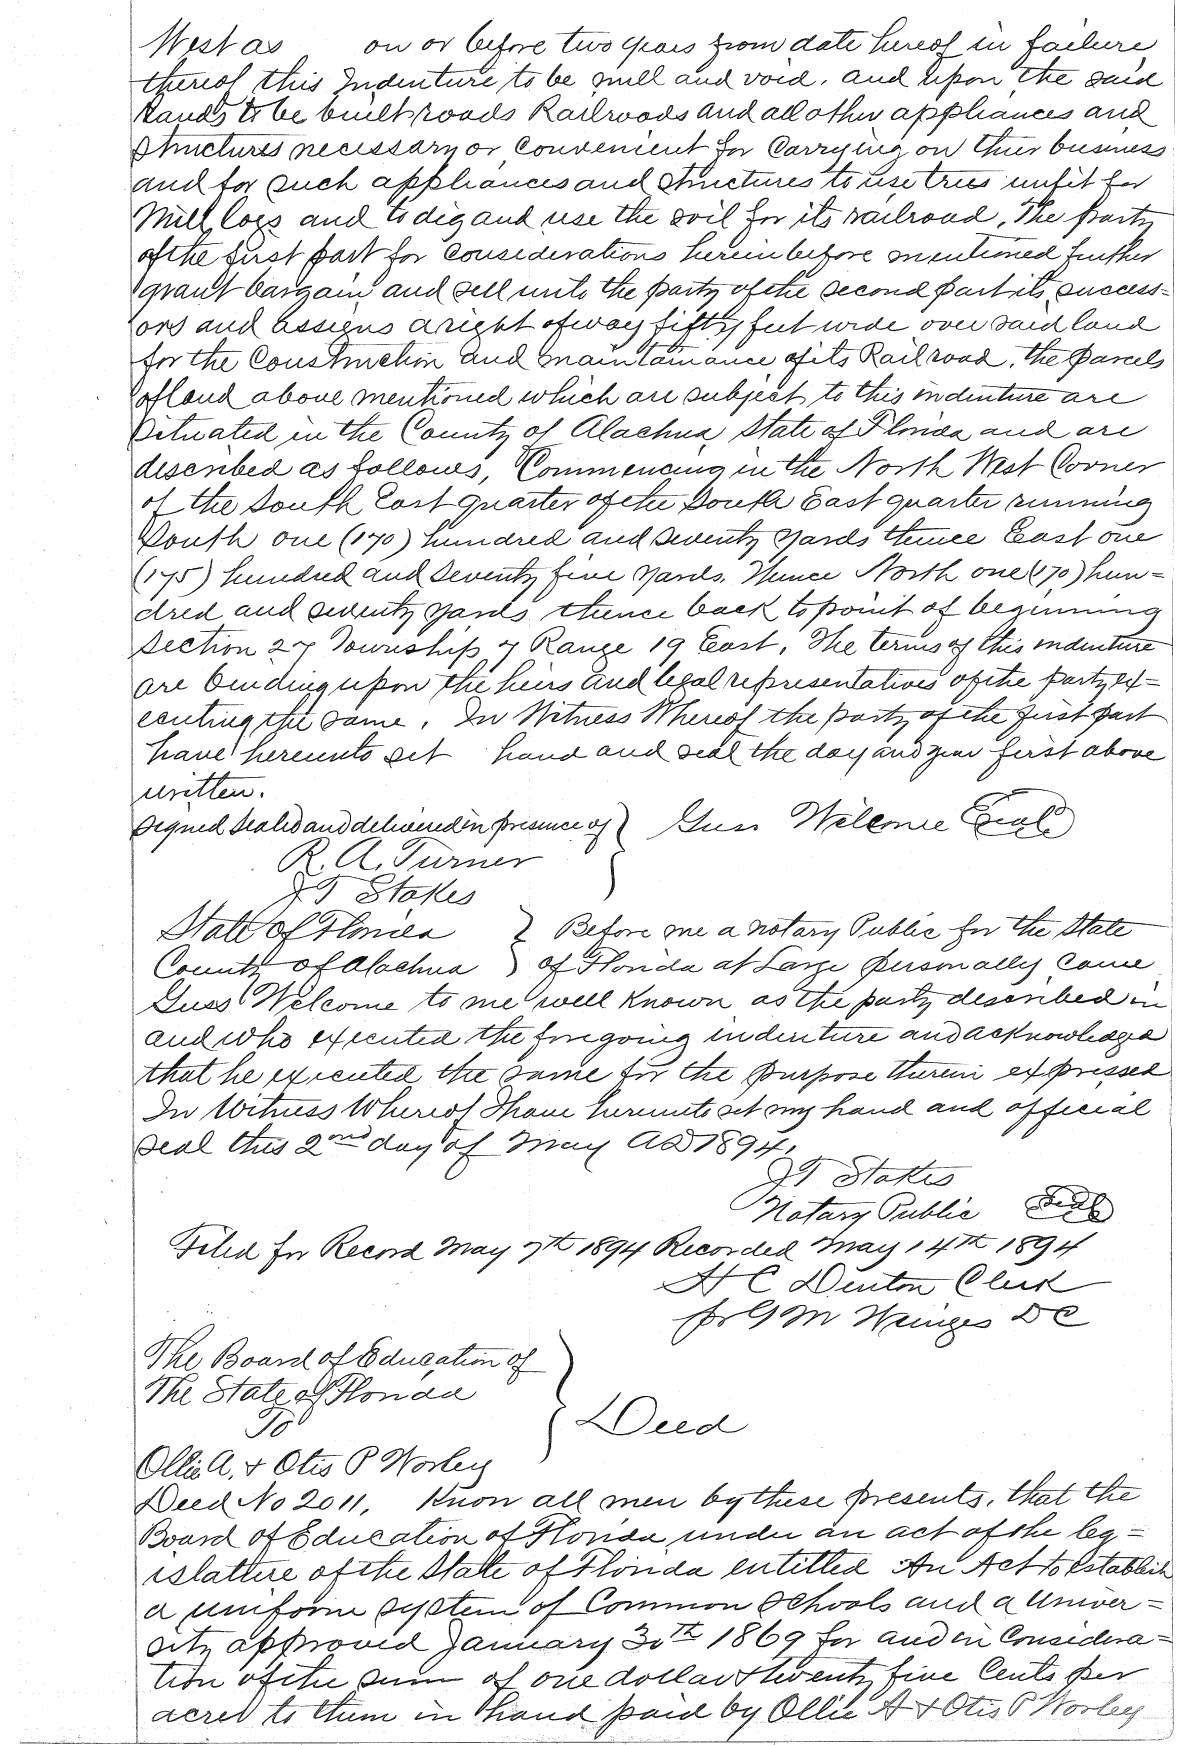 West as on or before two years from date hereof in failure
thereof this Indenture to be null and void. and upon the said
Lands to be built roads Railroads and all other appliances and
structures necessary or convenient for carrying on their business
and for such appliances and structures to use trees unfit for
Mill Logs and to dig and use the soil for its railroad. The party
of the first part for considerations herein before mentioned further
grant bargain and sell unto the party of the second part its success=
ors and assigns a right of way fifty feet wide over said land
for the Construction and maintainance of its Railroad. the parcels
of land above mentioned which are subject to this indenture are
situated in the County of Alachua State of Florida and are
described as follows, Commencing in the North West Corner
of the South East quarter of the South East quarter running
South one (170) hundred and seventy yards thence East one
(175) hundred and seventy five yards. thence North one (170) hun=
dred and seventy yards thence back to point of beginning
Section 27 Township 7 Range 19 East. The terms of this indenture
are binding upon the heirs and legal representatives of the party ex=
ecuting the same. In Witness Whereof the party of the first part
have hereunto set hand and seal the day and year first above
written.
Signed sealed and delivered in presence of } Guss Welcome Seal
R. A. Turner
J T Stokes
State of Florida } Before me a notary Public for the State
County of Alachua } of Florida at Large personally came
Guss Welcome to me well known as the party described in
and who executed the foregoing indenture and acknowledged
that he executed the same for the purpose therein expressed
In Witness Whereof I have hereunto set my hand and official
seal this 2nd day of May AD 1894.
J T Stokes
Notary Public Seal
Filed for Record May 7th 1894 Recorded May 14th 1894
H C Denton Clerk
pr G M DC
The Board of Education of
The State of Florida
To } Deed
Ollie A. & Otis P Worley
Deed No 2011. Know all men by these presents. that the
Board of Education of Florida under an act of the leg=
islature of the State of Florida entitled An Act to Establish
a uniform system of Common Schools and a Univer=
sity approved January 30th 1869 for and in Considera=
tion of the sum of one dollar & twenty five Cents per
acre to them in hand paid by Ollie A & Otis P Worley